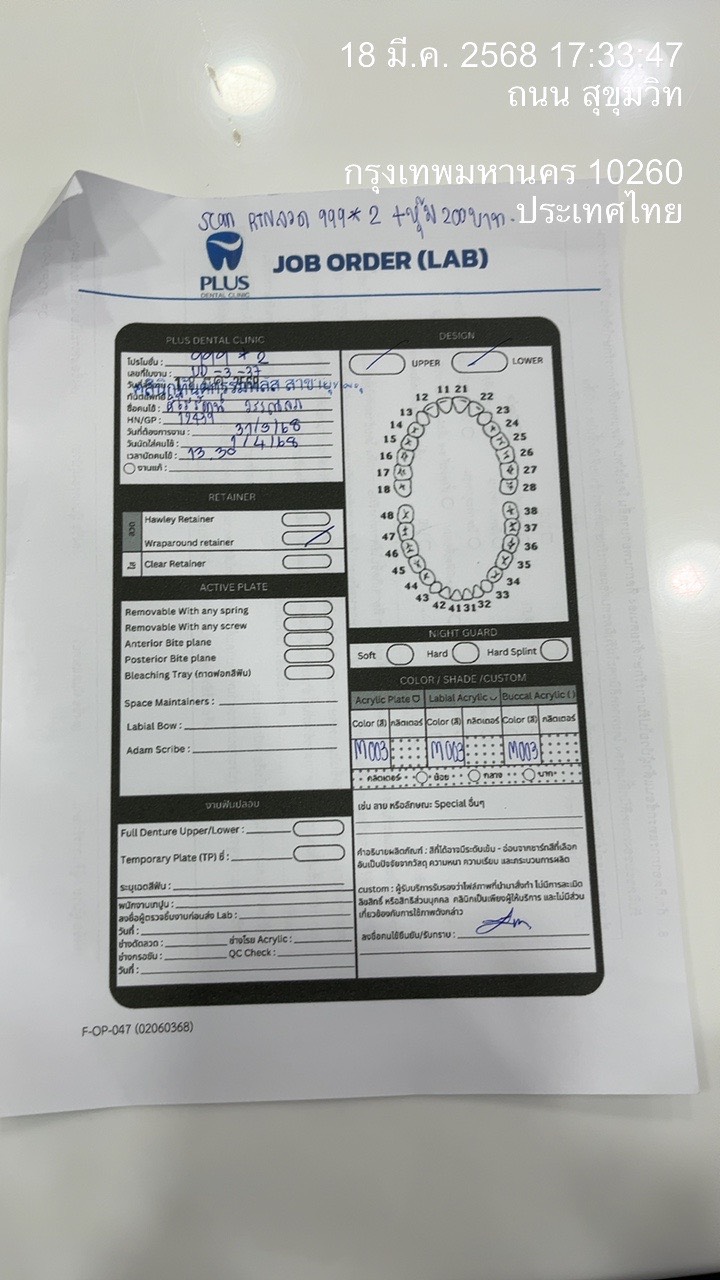 18 มี.ค. 2568 17:33:47
ถนน สุขุมวิท
กรุงเทพมหานคร 10260
ประเทศไทย
Scan RTNลวด 999*2 +หุ้ม 200บาท.
PLUS
DENTAL CLINIC
JOB ORDER (LAB)
PLUS DENTAL CLINIC
โปรโมชั่น : 999 * 2
เลขที่ใบงาน : UD -3-37
ชื่อคนไข้ :
HN/GP : 12419
วันที่ต้องการงาน : 31/3/68
วันนัดใส่คนไข้ : 1/4/68
เวลานัดคนไข้ : 13.30
งานแก้ :
RETAINER
ลวด
Hawley Retainer
Wraparound retainer
ใส
Clear Retainer
ACTIVE PLATE
Removable With any spring
Removable With any screw
Anterior Bite plane
Posterior Bite plane
Bleaching Tray (ถาดฟอกสีฟัน)
Space Maintainers :
Labial Bow :
Adam Scribe :
งานฟันปลอม
Full Denture Upper/Lower :
Temporary Plate (TP) ซี่ :
ระบุเฉดสีฟัน :
พนักงานเทปูน :
ลงชื่อผู้ตรวจชิ้นงานก่อนส่ง Lab :
วันที่ :
ช่างดัดลวด : ช่างโรย Acrylic :
ช่างกรอขัด : QC Check :
วันที่ :
DESIGN
UPPER LOWER
11 21
12 22
13 23
14 24
15 25
16 26
17 27
18 28
48 38
47 37
46 36
45 35
44 34
43 33
42 41 31 32
NIGHT GUARD
Soft Hard Hard Splint
COLOR / SHADE /CUSTOM
Acrylic Plate Labial Acrylic Buccal Acrylic ( )
Color (สี) กลิตเตอร์ Color (สี) กลิตเตอร์ Color (สี) กลิตเตอร์
M003 M003 M003
กลิตเตอร์ น้อย กลาง มาก
เช่น ลาย หรือลักษณะ Special อื่นๆ
คำอธิบายผลิตภัณฑ์ : สีที่ได้อาจมีระดับเข้ม - อ่อนจากชาร์ทสีที่เลือก
อันเป็นปัจจัยจากวัสดุ ความหนา ความเรียบ และกระบวนการผลิต
custom : ผู้รับบริการรับรองว่าไฟล์ภาพที่นำมาสั่งทำ ไม่มีการละเมิด
ลิขสิทธิ์ หรือสิทธิส่วนบุคคล คลินิกเป็นเพียงผู้ให้บริการ และไม่มีส่วน
เกี่ยวข้องกับการใช้ภาพดังกล่าว
ลงชื่อคนไข้ยืนยัน/รับทราบ :
F-OP-047 (02060368)